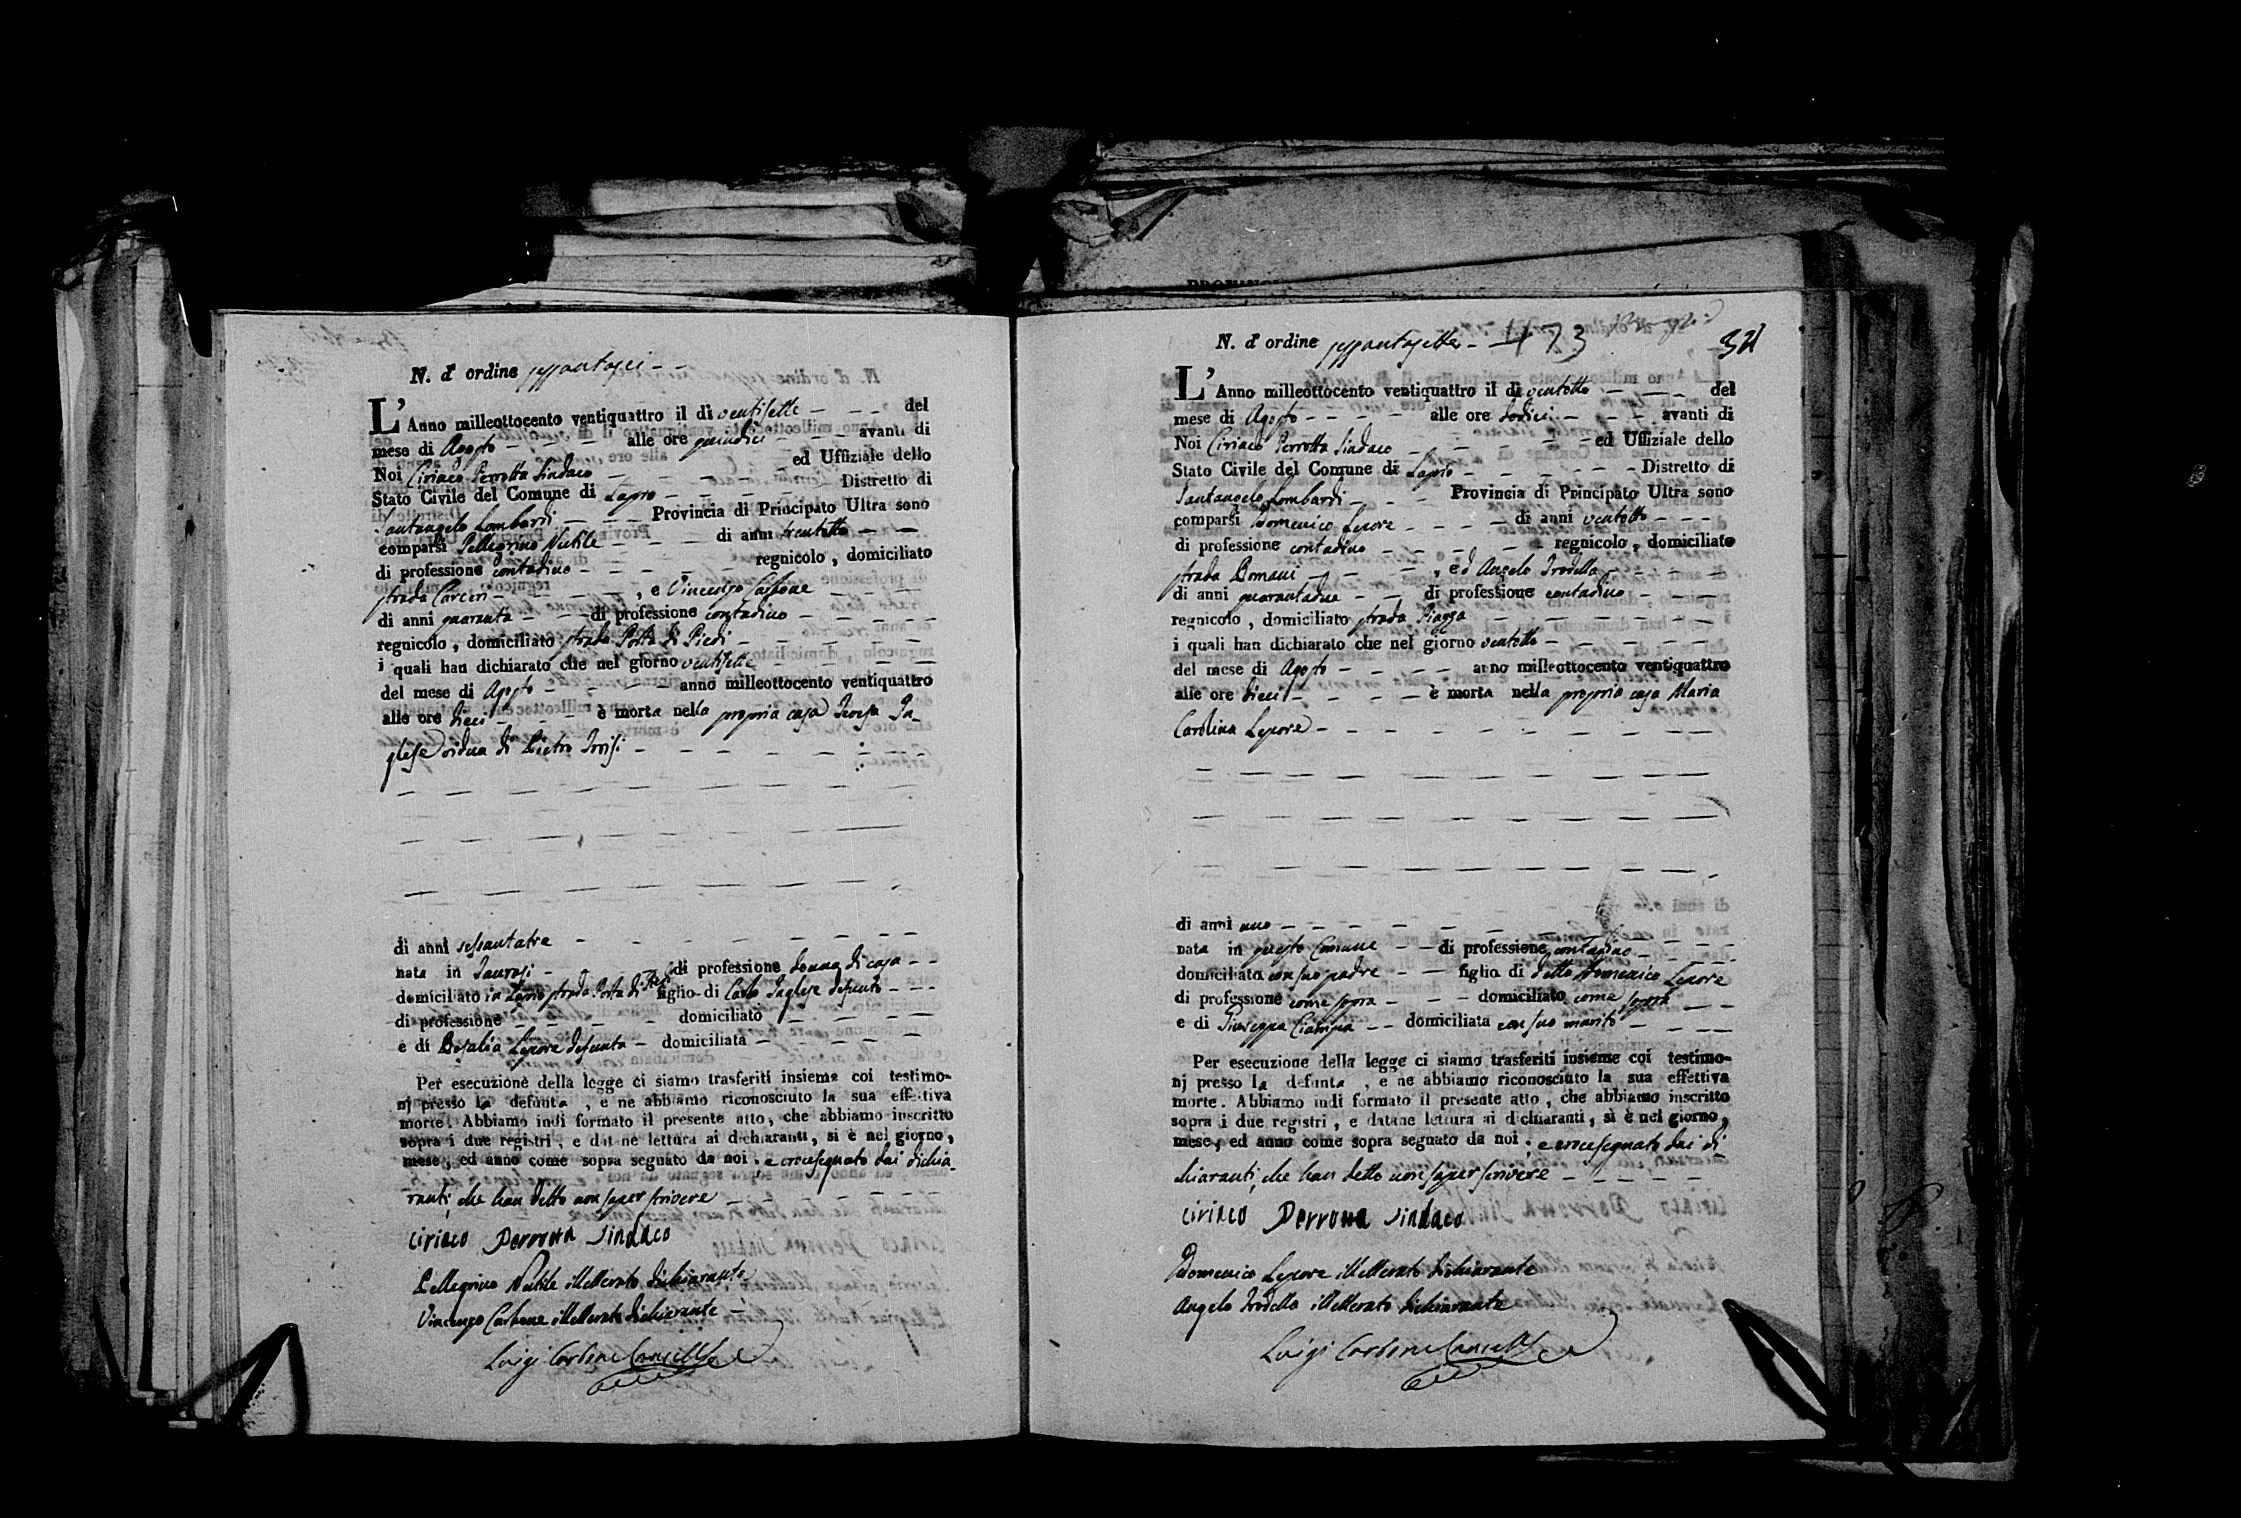 N. d' ordine
L' Anno milleottocento ventiquattro il di ventisette del
mese di Agosto alle ore quindici avanti di
Noi Ciriaco Perrotta Sindaco ed Uffiziale dello
Stato Civile del Comune di Lapio Distretto di
Santangelo Lombardi Provincia di Principato Ultra sono
comparsi Pellegrino Nutile di anni trentotto
di professione contadino regnicolo, domiciliato
strada Carceri, e Vincenzo Carbone
di anni quaranta di professione contadino
regnicolo, domiciliato strada Porta di Piedi
i quali han dichiarato che nel giorno ventisette
del mese di Agosto anno milleottocento ventiquattro
alle ore dieci è morta nella propria casa Teresa
vidua di Pietro
di anni sessantatre
nata in Taurasi di professione donna di casa
domiciliato in Lapio strada Porta di Piedi figlio di Carlo defunto
di professione domiciliato
e di Lepore defunta domiciliata
Per esecuzione della legge ci siamo trasferiti insieme coi testimo-
nj presso la defunta, e ne abbiamo riconosciuto la sua effettiva
morte. Abbiamo indi formato il presente atto, che abbiamo inscritto
sopra i due registri, e datane lettura ai dichiaranti, si è nel giorno,
mese, ed anno come sopra segnato da noi, e crocesegnato dai dichia-
ranti, che han detto non saper scrivere
Ciriaco Perrotta Sindaco
Pellegrino Nutile illetterato dichiarante
Vincenzo Carbone illetterato dichiarante
Luigi Carbone Cancelle
N. d' ordine 473
L' Anno milleottocento ventiquattro il di ventotto del
mese di Agosto alle ore dodici avanti di
Noi Ciriaco Perrotta Sindaco ed Uffiziale dello
Stato Civile del Comune di Lapio Distretto di
Santangelo Lombardi Provincia di Principato Ultra sono
comparsi Domenico Lepore di anni ventotto
di professione contadino regnicolo, domiciliato
strada, ed Angelo Trodella
di anni quarantadue di professione contadino
regnicolo, domiciliato strada Piazza
i quali han dichiarato che nel giorno ventotto
del mese di Agosto anno milleottocento ventiquattro
alle ore dieci è morta nella propria casa Maria
Carolina Lepore
di anni uno
nata in questo Comune di professione contadino
domiciliata con suo padre figlia di detto Domenico Lepore
di professione come sopra domiciliato come sopra
e di Giuseppa Ciampa domiciliata con suo marito
Per esecuzione della legge ci siamo trasferiti insieme coi testimo-
nj presso la defunta, e ne abbiamo riconosciuto la sua effettiva
morte. Abbiamo indi formato il presente atto, che abbiamo inscritto
sopra i due registri, e datane lettura ai dichiaranti, si è nel giorno,
mese, ed anno come sopra segnato da noi, e crocesegnato dai di-
chiaranti, che han detto non saper scrivere
Ciriaco Perrotta Sindaco
Domenico Lepore illetterato dichiarante
Angelo Trodella illetterato dichiarante
Luigi Carbone Cancelle